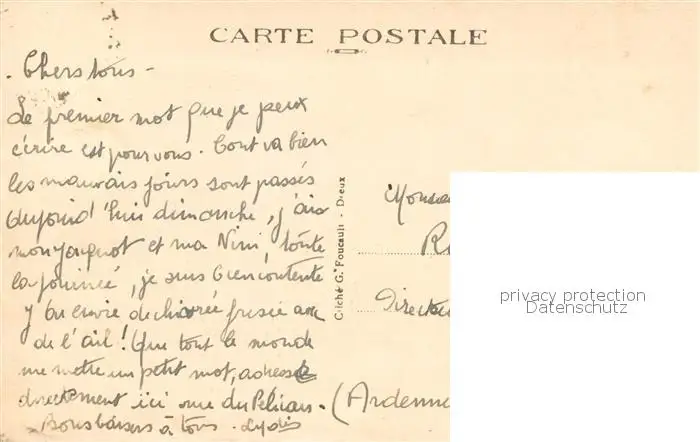 CARTE POSTALE
Chers tous -
Le premier mot que je peux
écrire est pour vous. Tout va bien
les mauvais jours sont passés
aujourd'hui dimanche, j'ai
mon et ma Nini, toute
la journée, je suis bien contente
j'ai envie de chicorée frisée avec
de l'ail! Que tout le monde
me mette un petit mot, adressé
directement ici rue du Pélican -
Bons baisers à tous -
Cliché G. Foucault - Dreux
Monsieu
R
Directeu
(Ardenn
privacy protection
Datenschutz